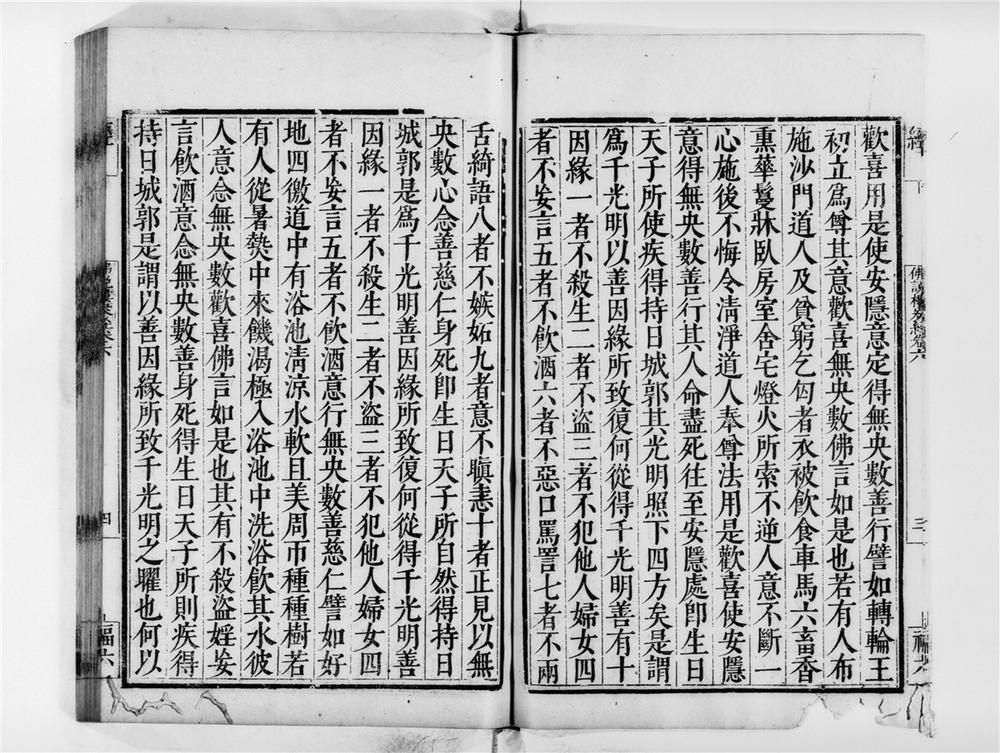 歡喜用是使安隱意定得無央數善行譬如轉輪王
初立爲尊其意歡喜無央數佛言如是也若有人布
施沙門道人及貧窮乞匃者衣被飲食車馬六畜香
熏華鬘牀臥房室舍宅燈火所索不逆人意不斷一
心施後不悔令清淨道人奉尊法用是歡喜使安隱
意得無央數善行其人命盡死往至安隱處卽生日
天子所使疾得持日城郭其光明照下四方矣是謂
爲千光明以善因緣所致復何從得千光明善有十
因緣一者不殺生二者不盜三者不犯他人婦女四
者不妄言五者不飲酒六者不惡口罵詈七者不兩
舌綺語八者不嫉妬九者意不瞋恚十者正見以無
央數心念善慈仁身死卽生日天子所自然得持日
城郭是爲千光明善因緣所致復何從得千光明善
因緣一者不殺生二者不盜三者不犯他人婦女四
者不妄言五者不飲酒意行無央數善慈仁譬如好
地四徼道中有浴池淸涼水軟且美周帀種種樹若
有人從暑熱中來饑渴極入浴池中洗浴飲其水彼
人意念無央數歡喜佛言如是也其有不殺盜婬妄
言飲酒意念無央數善身死得生日天子所則疾得
持日城郭是謂以善因緣所致千光明之曜也何以
四